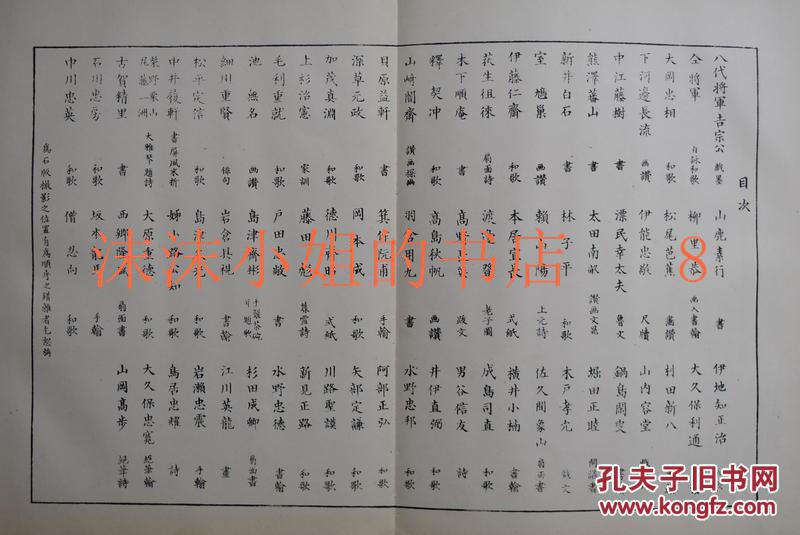 目次
八代将軍吉宗公 戯墨 山鹿素行 伊地知正治
仝将軍 自詠和歌 柳里恭 画入書翰 大久保利通
大岡忠相 和歌 松尾芭蕉 画讃 村田新八
下河邊長流 画讃 伊能忠敬 尺牘 山内容堂
中江藤樹 書 漂民幸太夫 魯文 鍋島閑叟
熊澤蕃山 書 太田南畝 讃画文晁 堀田正睦
新井白石 書 林子平 和歌 木戸孝允 戯文
室鳩巢 画讃 頼山陽 上元詩 佐久間象山 扇面書
伊藤仁齋 和歌 本居宣長 式紙 横井小楠 書翰
荻生徂徠 扇面詩 渡 登 老子圖 成島司直 和歌
木下順庵 書 高 跋文 男谷信友 詩
釋契冲 和歌 高島秋帆 画讃 井伊直弼 和歌
山崎闇齋 讃画探幽 羽倉用九 書 水野忠邦 和歌
貝原益軒 書 箕作阮甫 手翰 阿部正弘 和歌
深草元政 和歌 岡本成 和歌 矢部定謙 和歌
加茂真淵 和歌 徳川齊昭 式紙 川路聖謨 和歌
上杉治憲 家訓 藤田彪 集雲詩 新見正路 和歌
毛利重就 和歌 戸田忠敞 和歌 水野忠德 書翰
池無名 画讃 島津齊彬 杉田成卿 扇面書
細川重賢 俳句 岩倉具視 書翰 江川英龍 畫
松平定信 和歌 島津 和歌 岩瀬忠震 手翰
中井履軒 書屏風末折 姉小路公知 和歌 鳥居忠耀 詩
柴野栗山 尾藤二洲 大雅琴題詩 大原重德 和歌 大久保忠寛 書翰
古賀精里 書 西郷隆盛 扇面書 山岡高歩 絶筆詩
石川忠房 和歌 坂本龍馬 手翰
中川忠英 和歌 僧忍向 和歌
為石版撮影之位置有為順序之錯雜者乞恕焉
沫沫小姐的书店 8
孔夫子旧书网
kongfz.com